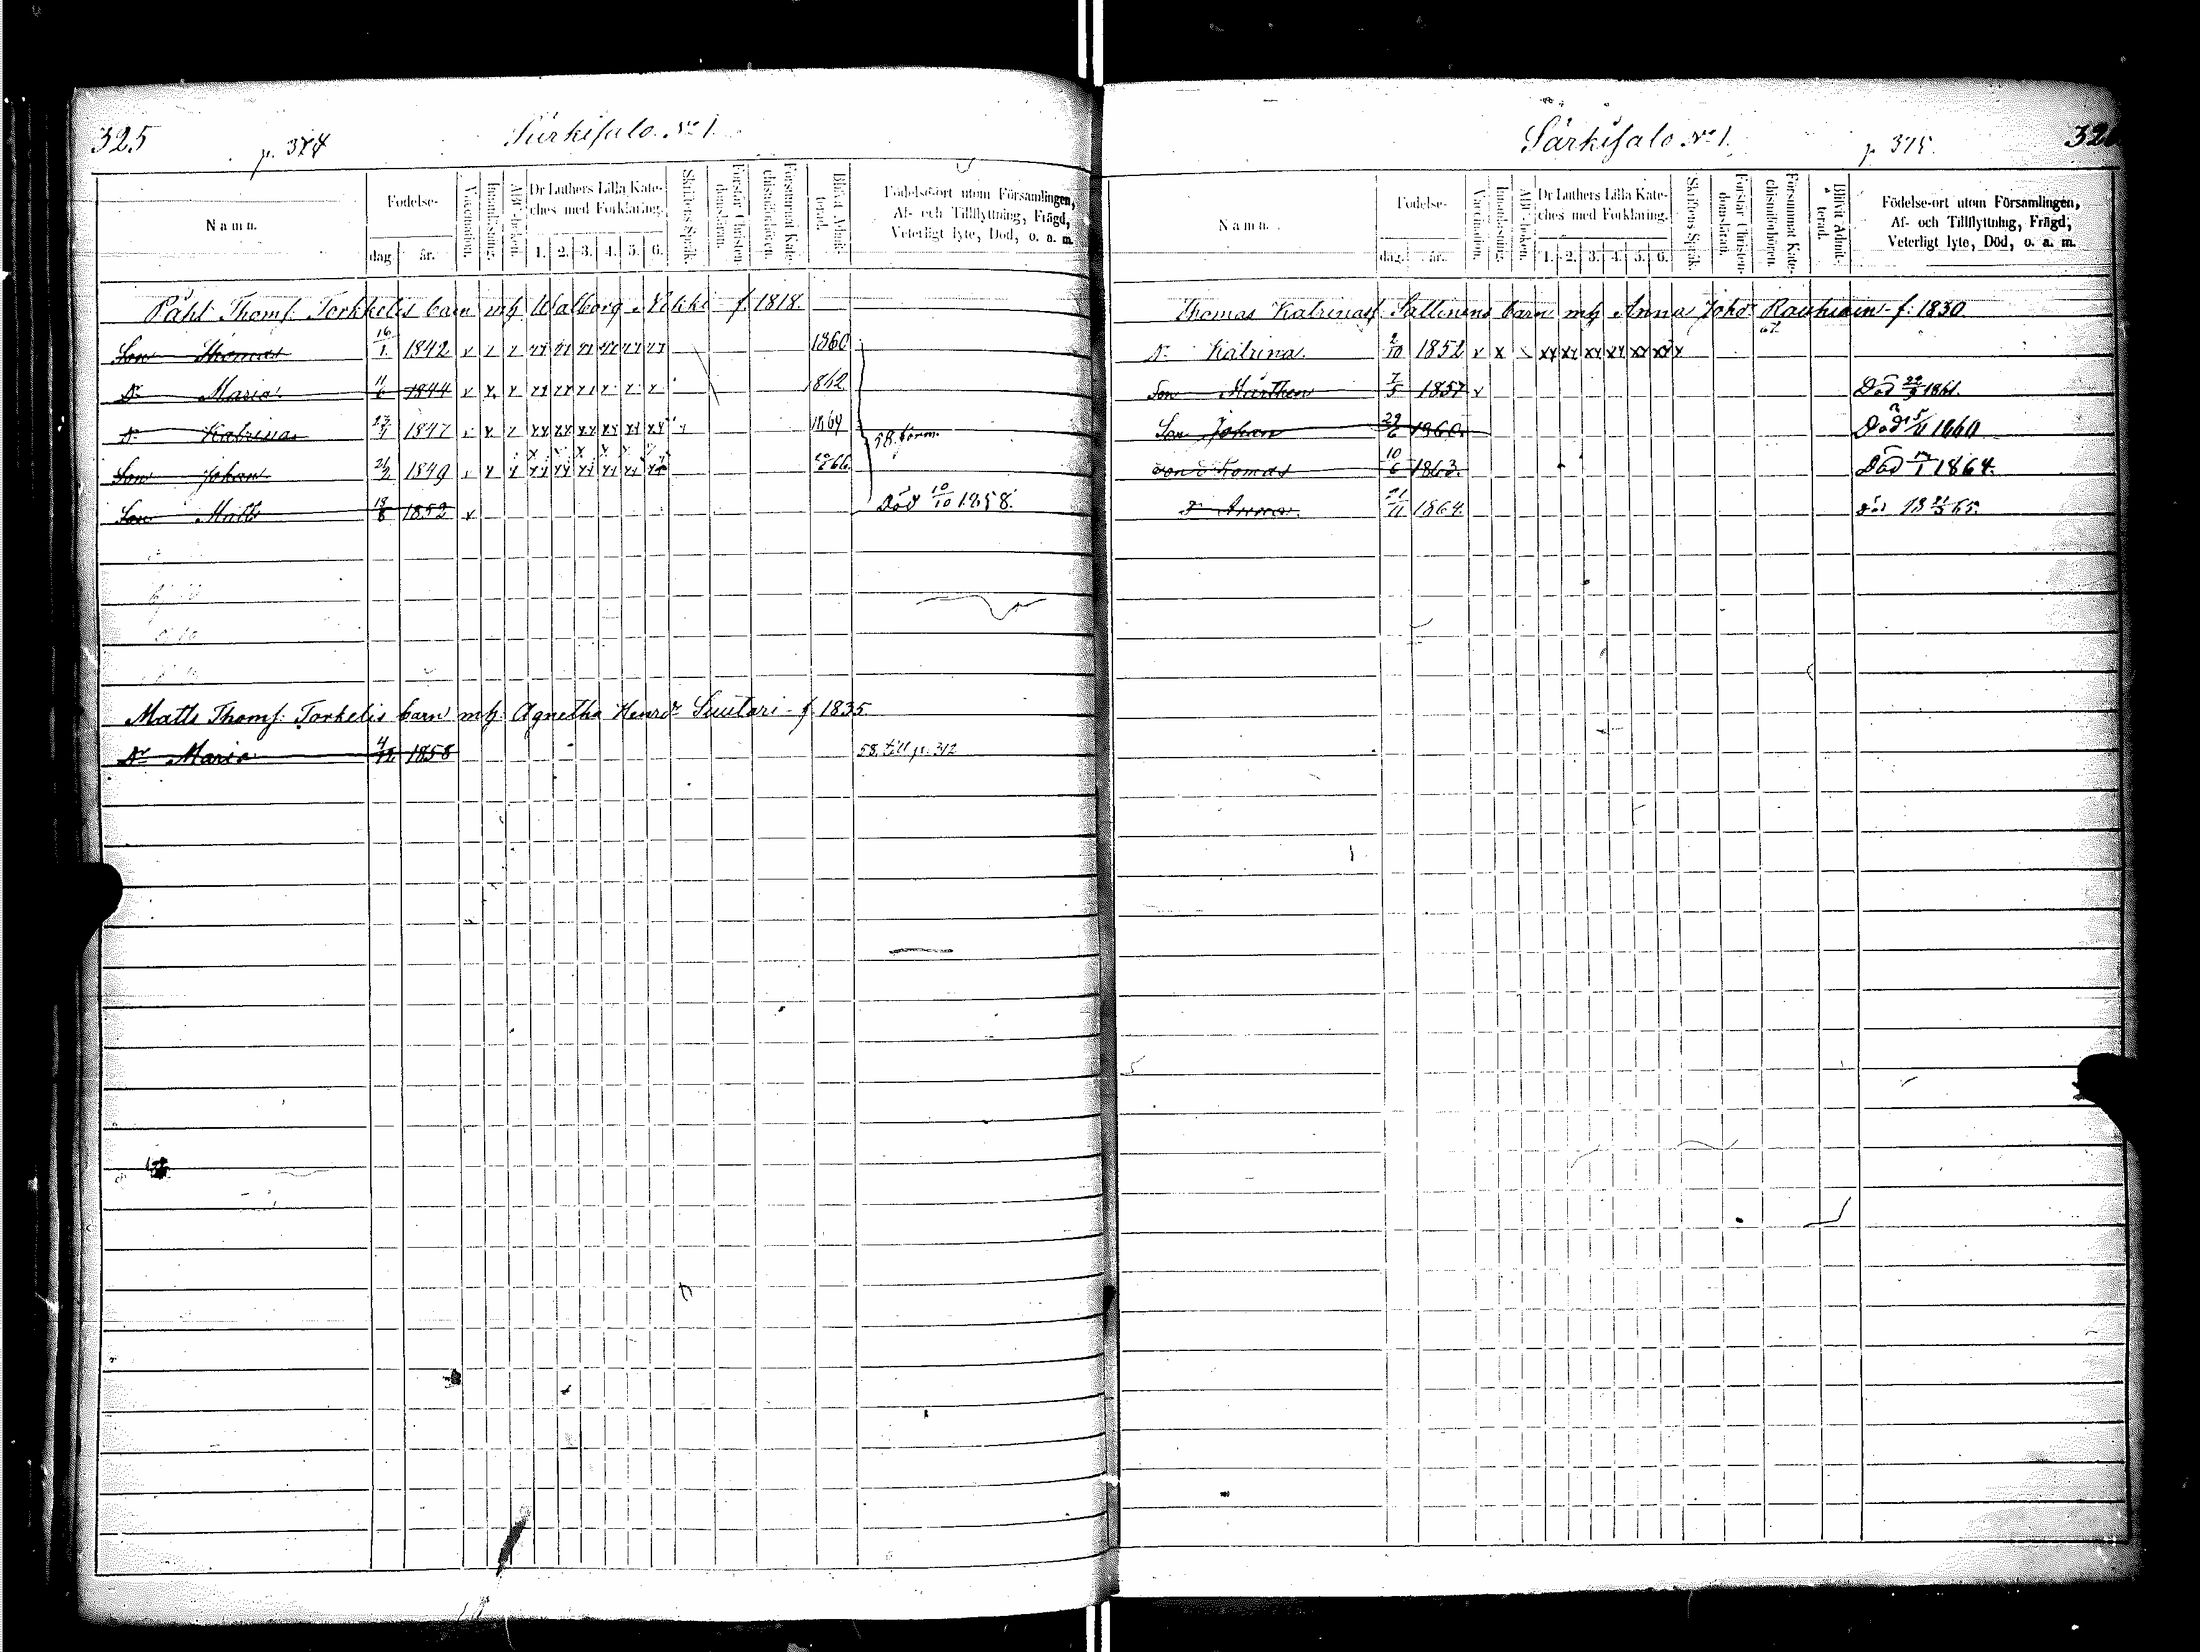 325
p. 374
Särkisalo No 1.
Namn.
Födelse-
dag
år.
Vaccination.
Innanläsning.
ABC-boken.
Dr Luthers Lilla Kate-
ches med Förklaring.
1. 2. 3. 4. 5. 6.
Skriftens Språk.
Förstår Christen-
domsläran.
Försummat Kate-
chismiförhören.
Blifvit Admit-
terad.
Födelse-ort utom Församlingen,
Af- och Tillflyttning, Frägd,
Veterligt lyte, Död, o. a. m.
Påhl Thomss. Torkkelis barn m h. Walborg f. 1818
Son Thomas 16/1 1842 1860
Dr Maria 11/6 1844 1862
Dr Katrina 1847 1864
Son Johan 2/2 1849 66
Son Matts 18/8 1852 Död 10/10 1858.
Matts Thomss. Torkelis barn m h. Agnetha Henrdr Suutari - f. 1835
Dr Maria 4/12 1858 58. till p. 312
Särkisalo No 1.
p. 375.
Namn.
Födelse-
dag.
år.
Vaccination.
Innanläsning.
ABC-boken.
Dr Luthers Lilla Kate-
ches med Förklaring.
1. 2. 3. 4. 5. 6.
Skriftens Språk.
Förstår Christen-
domsläran.
Försummat Kate-
chismiförhören.
Blifvit Admit-
terad.
Födelse-ort utom Församlingen,
Af- och Tillflyttning, Frägd,
Veterligt lyte, Död, o. a. m.
Thomas Katrinass. Sallinens barn m h Anna Johdr Rauhiain - f. 1830
Dr Katrina 2/10 1852
Son Mårthen 7/5 1857 Död 1861.
Son Johan 29/6 1860. Död 1860
Son Thomas 10/6 1863. Död 1864.
Dr Anna. 21/11 1864. 65.